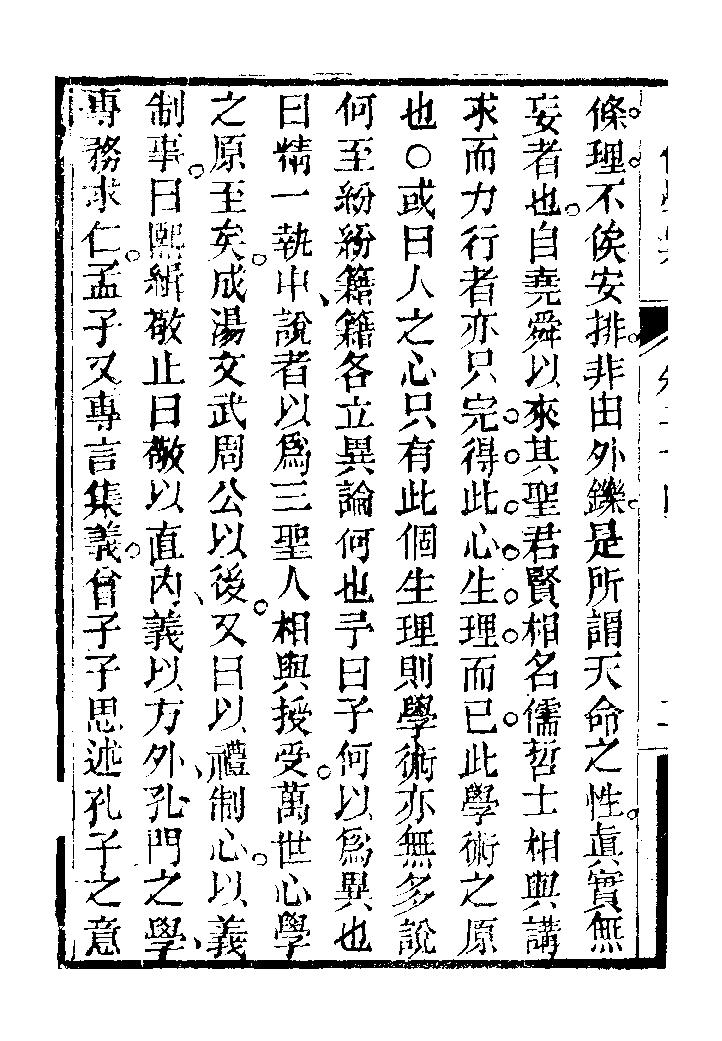 條理不俟安排非由外鑠是所謂天命之性眞實無
妄者也自堯舜以來其聖君賢相名儒哲士相與講
求而力行者亦只完得此心生理而已此學術之原
也○或曰人之心只有此個生理則學術亦無多說
何至紛紛籍籍各立異論何也予曰子何以爲異也
曰精一執中說者以爲三聖人相與授受萬世心學
之原至矣成湯文武周公以後又曰以禮制心以義
制事曰熙緝敬止曰敬以直內義以方外孔門之學
專務求仁孟子又專言集義曾子子思述孔子之意